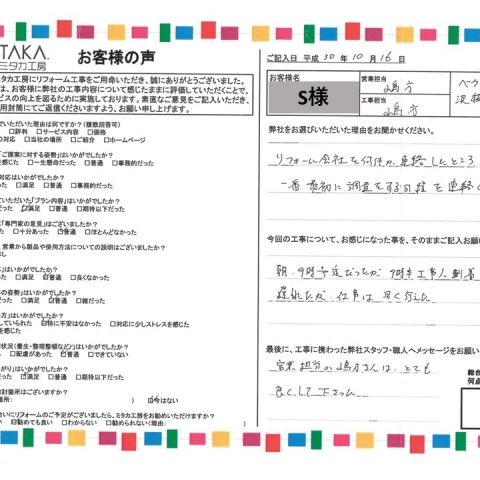 TAKA.
ミタカ工房
お客様の声
ミタカ工房にリフォーム工事をご用命いただき、誠にありがとうございました。
は、お客様に弊社の工事内容について感じたままに評価していただくことで、
ビスの向上を図るために実施しております。素直なご意見をご記入いただき、
用封筒にてご返信くださいますよう、お願い申し上げます。
いただいた理由は何ですか?(複数回答可)
□評判 □サービス内容 □価格
□対応 □当社の場所 □ご紹介 □ホームページ
「ご提案に対する姿勢」はいかがでしたか?
を感じた □一生懸命だった ☑普通 □事務的だった
対応はいかがでしたか?
った □満足 ☑普通 □事務的だった
ていただいた「プラン内容」はいかがでしたか?
だった ☑満足 □普通 □期待以下だった
「専門家の意見」はございましたか?
た □十分あった ☑普通 □ほとんどなかった
営業から製品や使用方法についての説明はございましたか?
はいかがでしたか?
た □満足 ☑普通 □良くなかった
の姿勢」はいかがでしたか?
た □満足 ☑普通 □雑だった
方」はいかがでしたか?
していられた ☑特に不安はなかった □対応に少しストレスを感じた
を感じた
状況(養生・整理整頓など)」はいかがでしたか?
□配慮があった ☑普通 □できていない
がり」はいかがでしたか?
□満足 ☑普通 □期待以下だった
討箇所はございますか?
箇所: ) ☑今はない
いにリフォームのご予定がございましたら、ミタカ工房をお勧めいただけますか?
☑勧めても良い □わからない □勧められない(理由:
ご記入日 平成 30 年 10 月 16 日
お客様名
S様
営業担当
嶋方
工事担当
嶋方
弊社をお選びいただいた理由をお聞かせください。
リフォーム会社を何件か連絡したところ
一番最初に調査をする日程を連絡
今回の工事について、お感じになった事を、そのままご記入お願い
朝、9時予定だったが 9時半 工事人到着
遅れたが、仕事は早く行えた
最後に、工事に携わった弊社スタッフ・職人へメッセージをお願い
営業担当の嶋方さんは、とても
良くして下さった
総合
何点